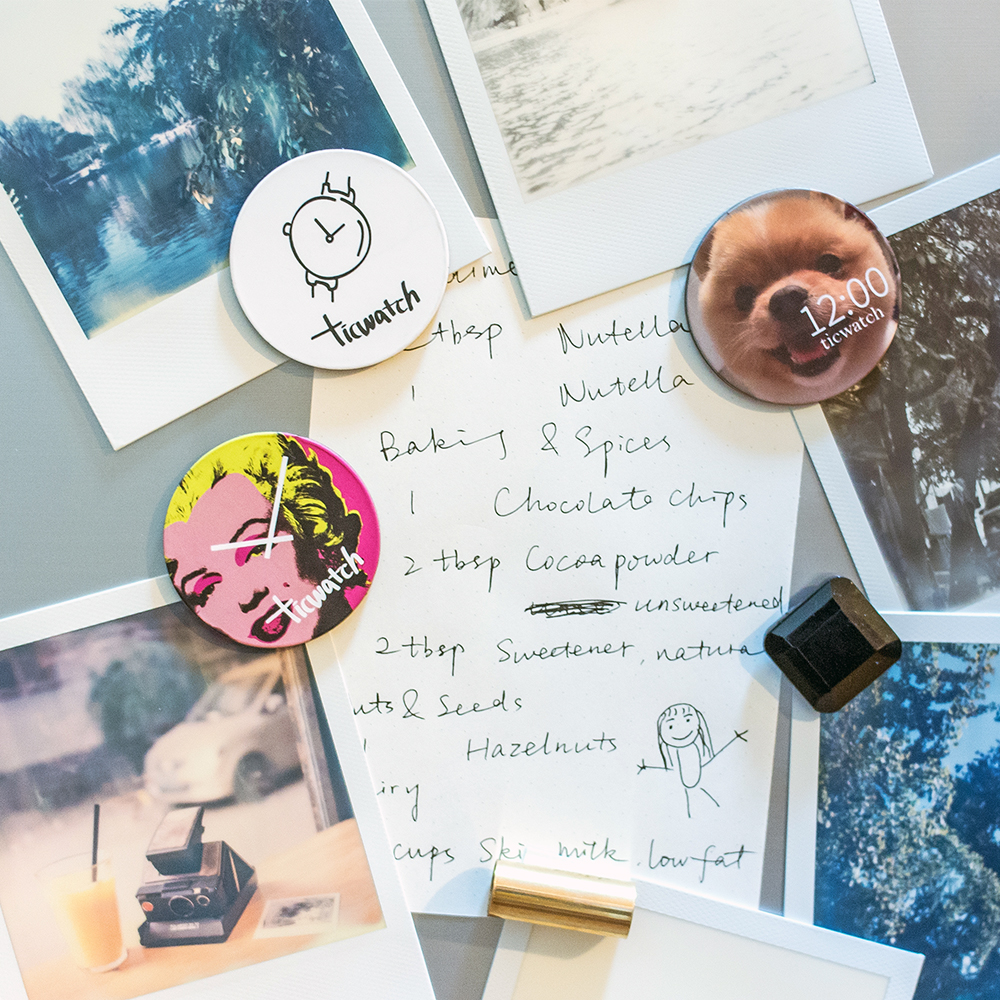 ticwatch
12:00
ticwatch
tbsp Nutella
1 Nutella
Baking & Spices
1 Chocolate chips
2 tbsp Cocoa powder
unsweetened
ticwatch
2 tbsp Sweetener, natura
uts & Seeds
1 Hazelnuts
iry
cups Ski milk, low fat